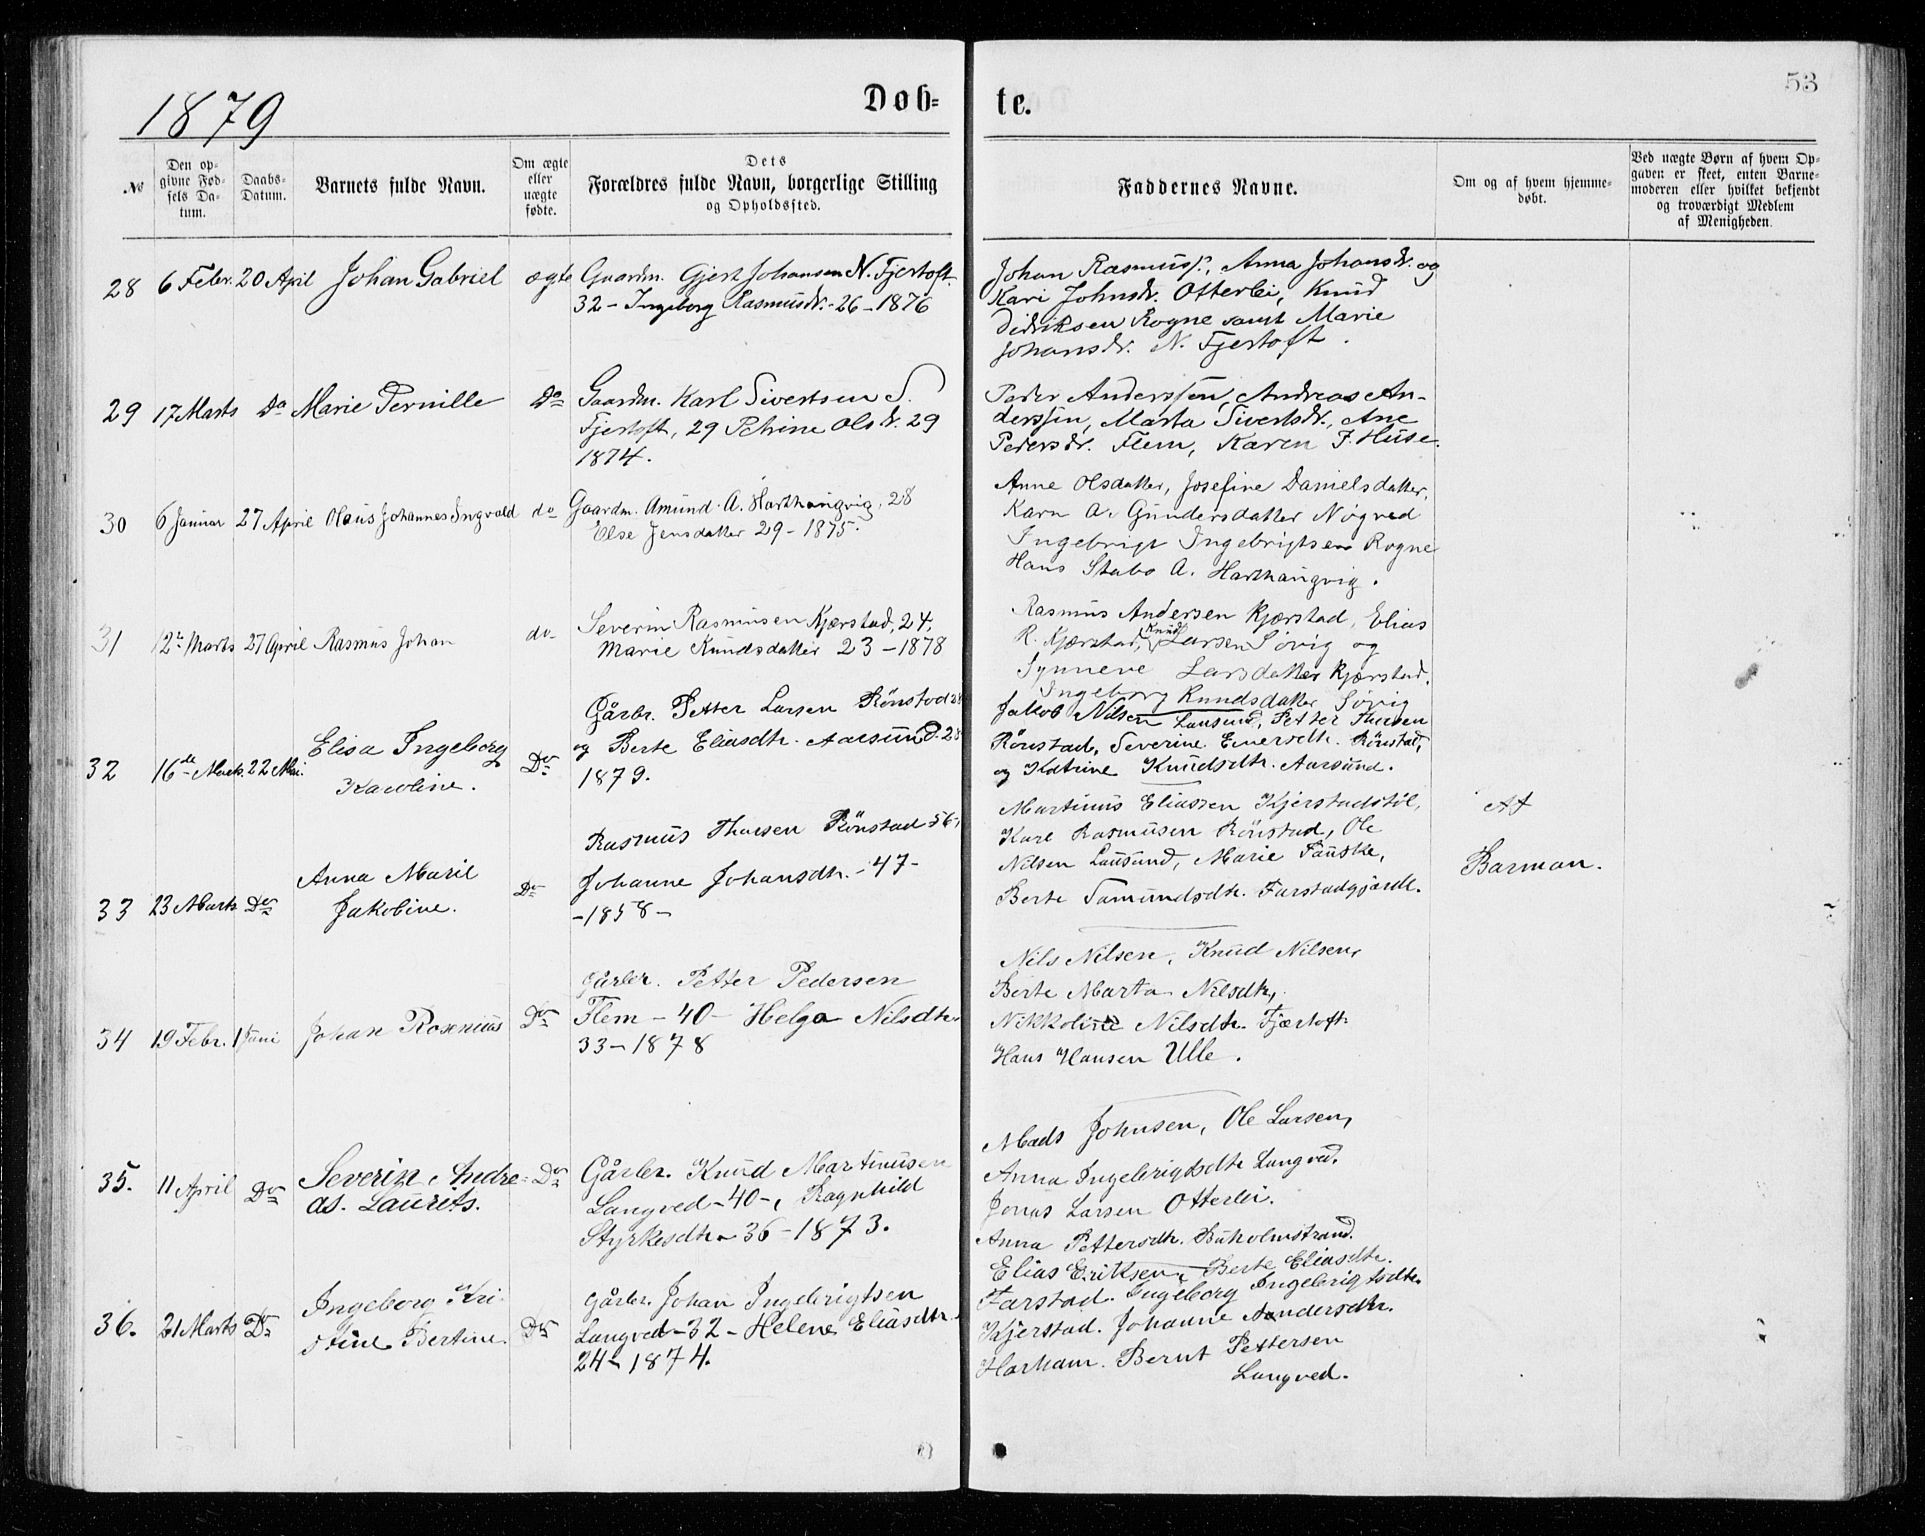 1879
Døb-
te.
53
№
Den op-
givne Fød-
sels Da-
tum.
Daabs-
Datum.
Barnets fulde Navn.
Om ægte
eller
uægte
fødte.
Dets
Forældres fulde Navn, borgerlige Stilling
og Opholdssted.
Faddernes Navne.
Om og af hvem hjemme-
døbt.
Ved uægte Børn af hvem Op-
gaven er skeet, enten Barne-
moderen eller hvilket bekjendt
og troværdigt Medlem
af Menigheden.
28 6 Febr. 20 April Johan Gabriel ægte Gaardm. Gjert Johansen N. Fjertoft
32 - Ingeborg Rasmusdr. - 26 - 1876
Johan Rasmuss., Anna Johansdr. og
Kari Johnsdr. Otterlei, Knud
Didriksen Rogne samt Marie
Johansdr. N. Fjertoft.
29 17 Marts Do Marie Pernille Do Gaardm. Karl Sivertsen S.
Fjertoft, 29 Petrine Olsdr. 29
1874.
Peder Anderssen, Andreas An-
derssen, Marta Sivertsdr., Ane
Pedersdr. Flem, Karen J. Huse.
30 6 Januar 27 April Olaus Johannes Ingvald do Gaardm. Amund A. Harthaugvig, 28
Else Jensdatter 29 - 1875.
Anne Olsdatter, Josefine Danielsdatter,
Karn A. Gundersdatter Nogved
Ingebrigt Ingebrigtsen Rogne
Hans Stabo A. Harthaugvig.
31 12te Marts 27 April Rasmus Johan do- Severin Rasmusen Kjærstad, 24,
Marie Knudsdatter 23 - 1878
Rasmus Andersen Kjærstad, Elias
R. Kjærstad, Knud Larsen Søvig og
Synneve Larsdatter Kjærstad.
Ingeborg Knudsdatter Søvig
32 16de Marts. 22 Mai. Elisa Ingeborg
Karoline. Do Gårbr. Petter Larsen Rönstad 28
og Berte Eliasdtr. Aarsund. 28
1879.
Jakob Nilsen Lausund, Petter Thorsen
Rönstad, Severine Einersdtr. Rönstad,
og Katrine Knudsdtr. Aarsund.
33 23 Marts Do Anna Marie
Jakobine. Do Rasmus Thorsen Rönstad - 56,
Johanne Johansdtr. - 47 -
- 1858 -
Martinus Eliassen Kjerstadstöl,
Karl Rasmusen Rönstad, Ole
Nilsen Lausund, Marie Fauske,
Berte Samundsdtr. Farstadgjærde.
Af
Barman.
34 19 Febr. 1 Juni Johan Rosenius Do Gårbr. Petter Pedersen
Flem - 40 - Helga Nilsdtr.
33 - 1878
Nils Nilsen, Knud Nilsen,
Berte Marta Nilsdtr,
Nikkoline Nilsdtr. Fjærtoft
Hans Hansen Ulle.
35. 11 April Do Severin Andre-
as. Laurits. Do Gårbr. Knud Martinusen
Langved - 40 -, Ragnhild
Styrkesdtr - 36 - 1873.
Mads Johnsen, Ole Larsen,
Anna Ingebrigtsdtr Langved.
Jonas Larsen Otterlei.
Anna Pettersdtr. Buholmstrand.
36. 31 Marts Do Ingeborg Kri-
stine Bertine. Do Gårbr. Johan Ingebrigtsen
Langved - 32 - Helene Eliasdtr.
24 - 1874.
Elias Eriksen, Berte Eliasdtr.
Farstad. Ingeborg Ingebrigtsdtr.
Kjerstad. Johanne Andersdtr.
Harham. Bernt Pettersen
Langved.